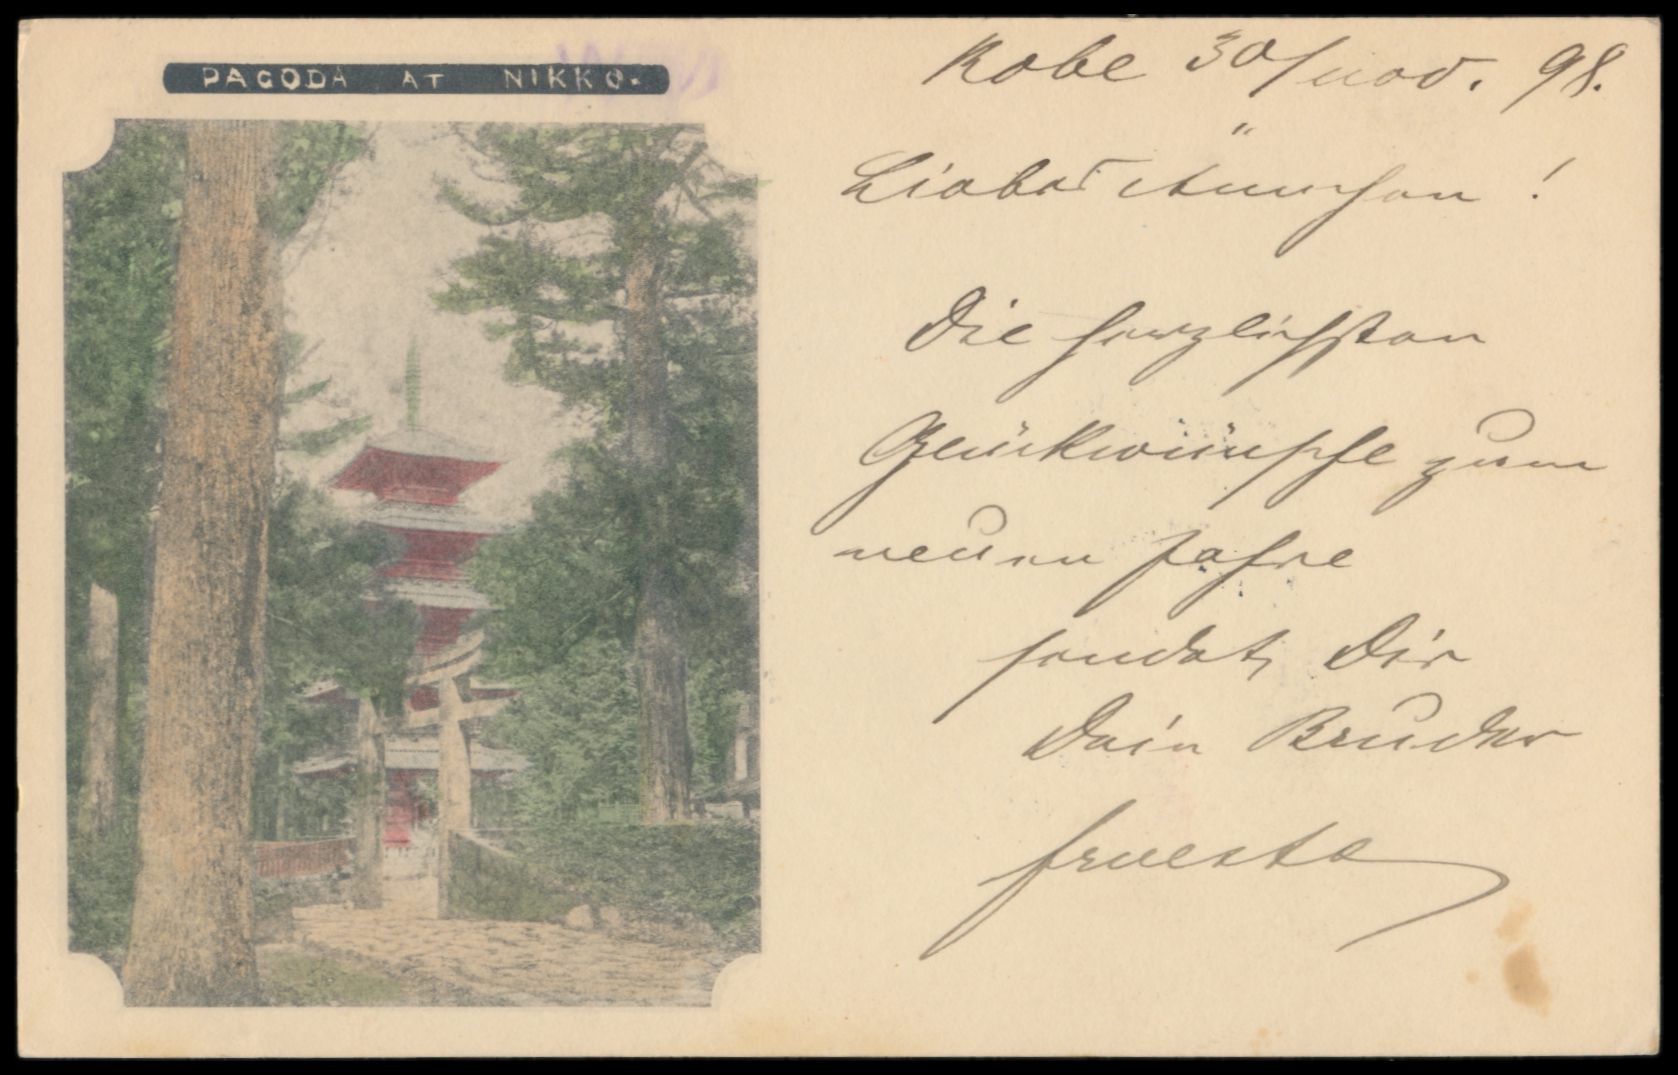 PAGODA AT NIKKO.
Kobe 30/nov. 98.
Lieber
Die herzlichsten
Glückwünsche zum
neuen Jahre
sendet Dir
Dein Bruder